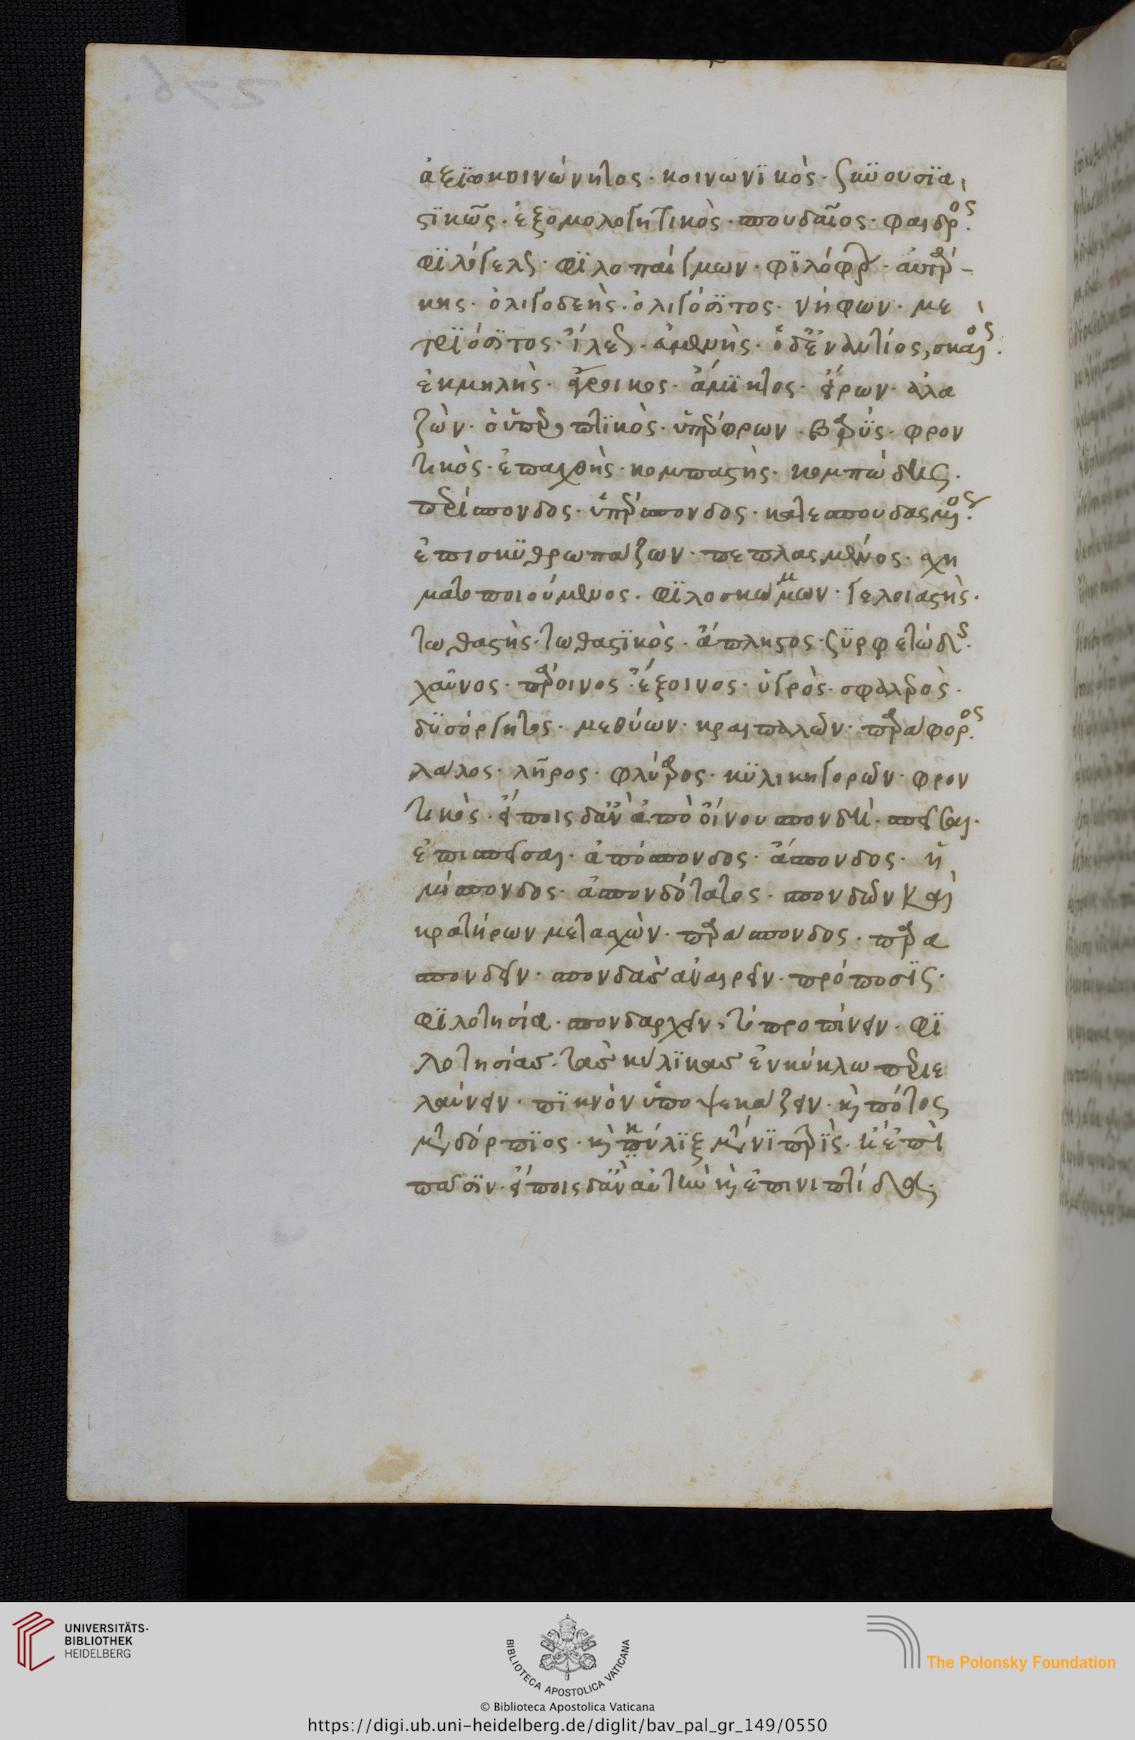 ἀξϊοκοινώνητος· κοινωνϊκὸς· συνουσϊα
στϊκῶς· ἐξομολογητικὸς· σπουδαῖος· φαιδρὸς.
φϊλόγελως· φϊλοπαίγμων· φϊλόφρων· αὐτάρ-
κης· ὀλιγοδεὴς· ὀλιγόσϊτος· νήφων· με
τρϊόσϊτος· ἵλεως· εὐμενὴς· ὁ δὲ ἐναντίος, σκαιὸς.
ἐκμηλὴς· ἄγροικος· ἄμϊκτος· εἴρων· ἀλα
ζὼν· ὑπεροπτϊκὸς· ὑπέρφρων· βαρῢς· φρον
τικὸς· ἐπαχθὴς· κομπαστὴς· κομπώδης.
περίσπουδος· ὑπέρσπουδος· κατεσπουδασμένος.
ἐπισκϋθρωπάζων· πεπλασμένος· σχη
ματοποιούμενος· φϊλοσκώμμων· γελοιαστὴς.
τωθαστὴς· τωθαστϊκὸς· ἄπληστος· συρφετώδης.
χαῦνος· πάροινος· ἔξοινος· ὑγρὸς· σφαλερὸς.
δϋσόργητος· μεθύων· κραιπαλῶν· παράφορος.
λάλος· λῆρος· φλύαρος· κϋλικηγορῶν· φρον
τικὸς· εἴποις δ' ἂν ἀπὸ οἴνου σπονδὴ· σπεῖσαι.
ἐπισπεῖσαι· ἀπόσπονδος· ἄσπονδος· ἡ
μίσπονδος· ἀσπονδότατος· σπονδῶν καὶ
κρατήρων μετασχὼν· παράσπονδος· παρα
σπονδεῖν· σπονδὰς ἀναιρεῖν· πρόποσϊς·
φϊλοτησία· σπονδαρχεῖν, τὸ προπίνειν· φϊ
λοτησίας· τὰς κύλϊκας ἐν κύκλω περιε
λαύνειν· πϊκνὸν ὑποψεκάζειν· καὶ πότος
μεταδόρπϊος· καὶ κύλϊξ μετανιπτρὶς· καὶ ἐπὶ
πᾶσϊν· εἴποις δ' ἂν αὐτὴν καὶ ἐπινιπτρίδα·
UNIVERSITÄTS-
BIBLIOTHEK
HEIDELBERG
BIBLIOTECA APOSTOLICA VATICANA
The Polonsky Foundation
© Biblioteca Apostolica Vaticana
https://digi.ub.uni-heidelberg.de/diglit/bav_pal_gr_149/0550